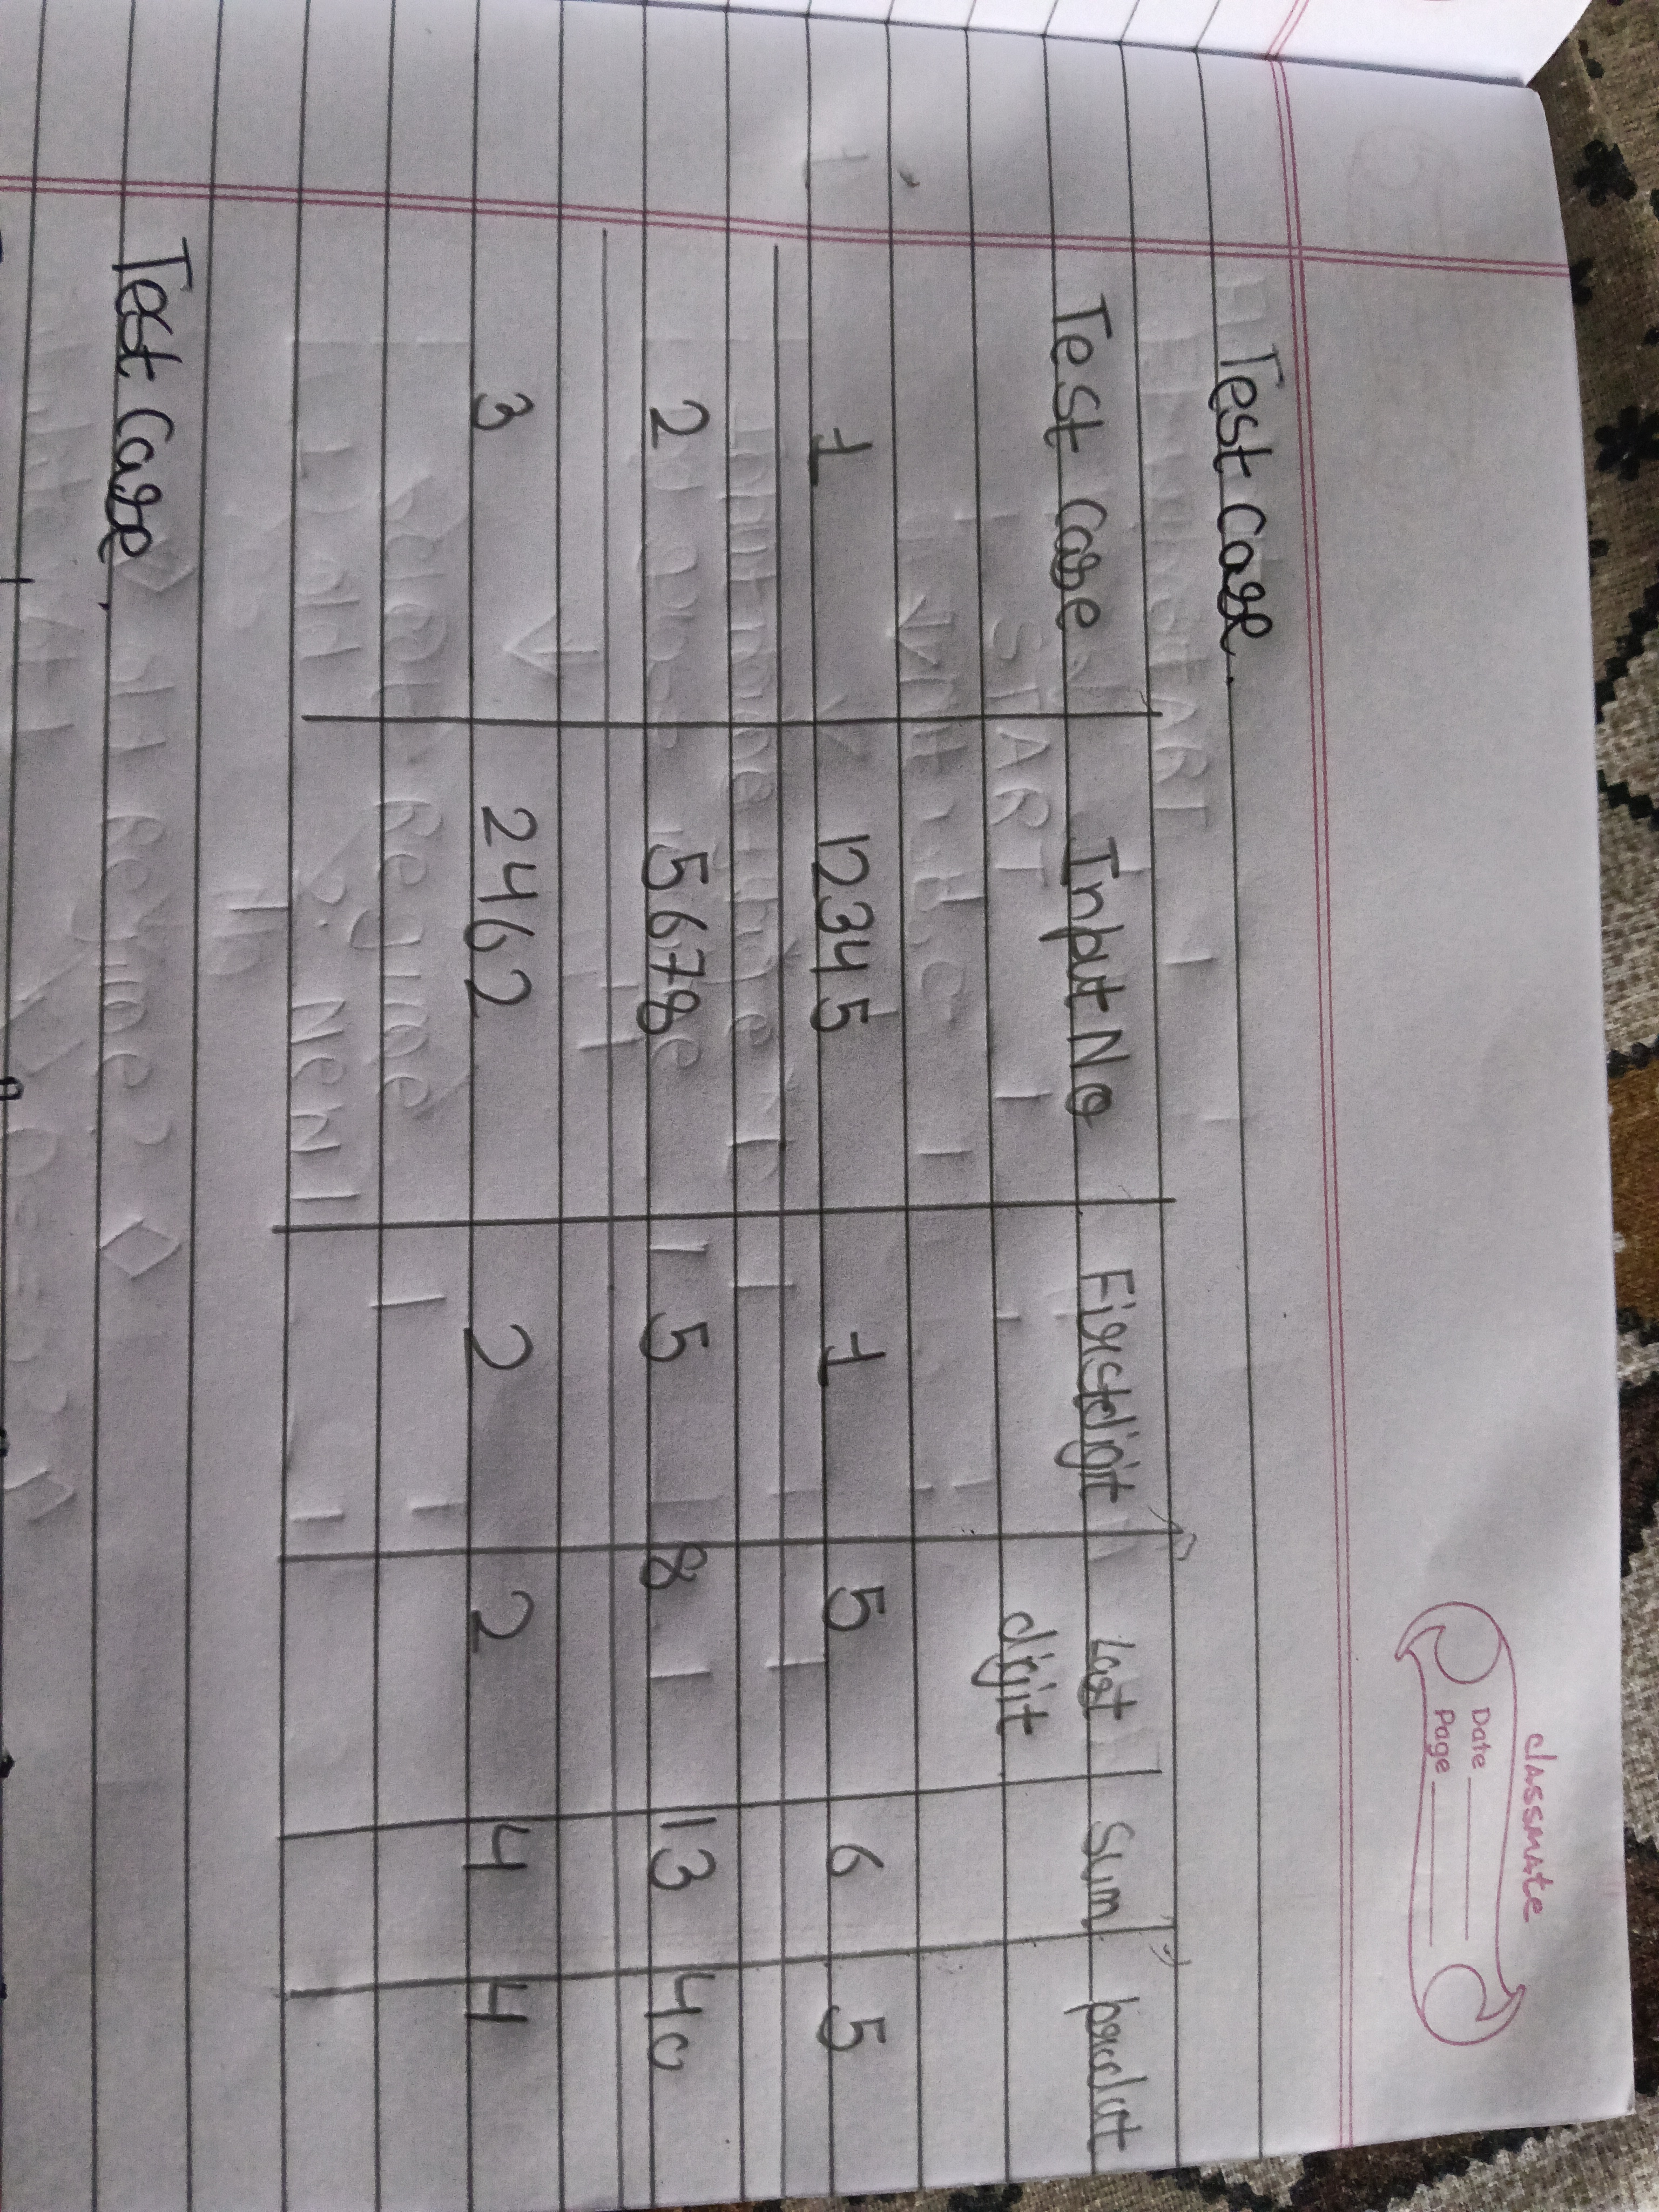 classmate
Date
Page
Test Case.
Test Case Input No Firstdigit Last Sum product
digit
1 12345 1 5 6 5
2 5678 5 8 13 40
3 2462 2 2 4 4
Test Case.